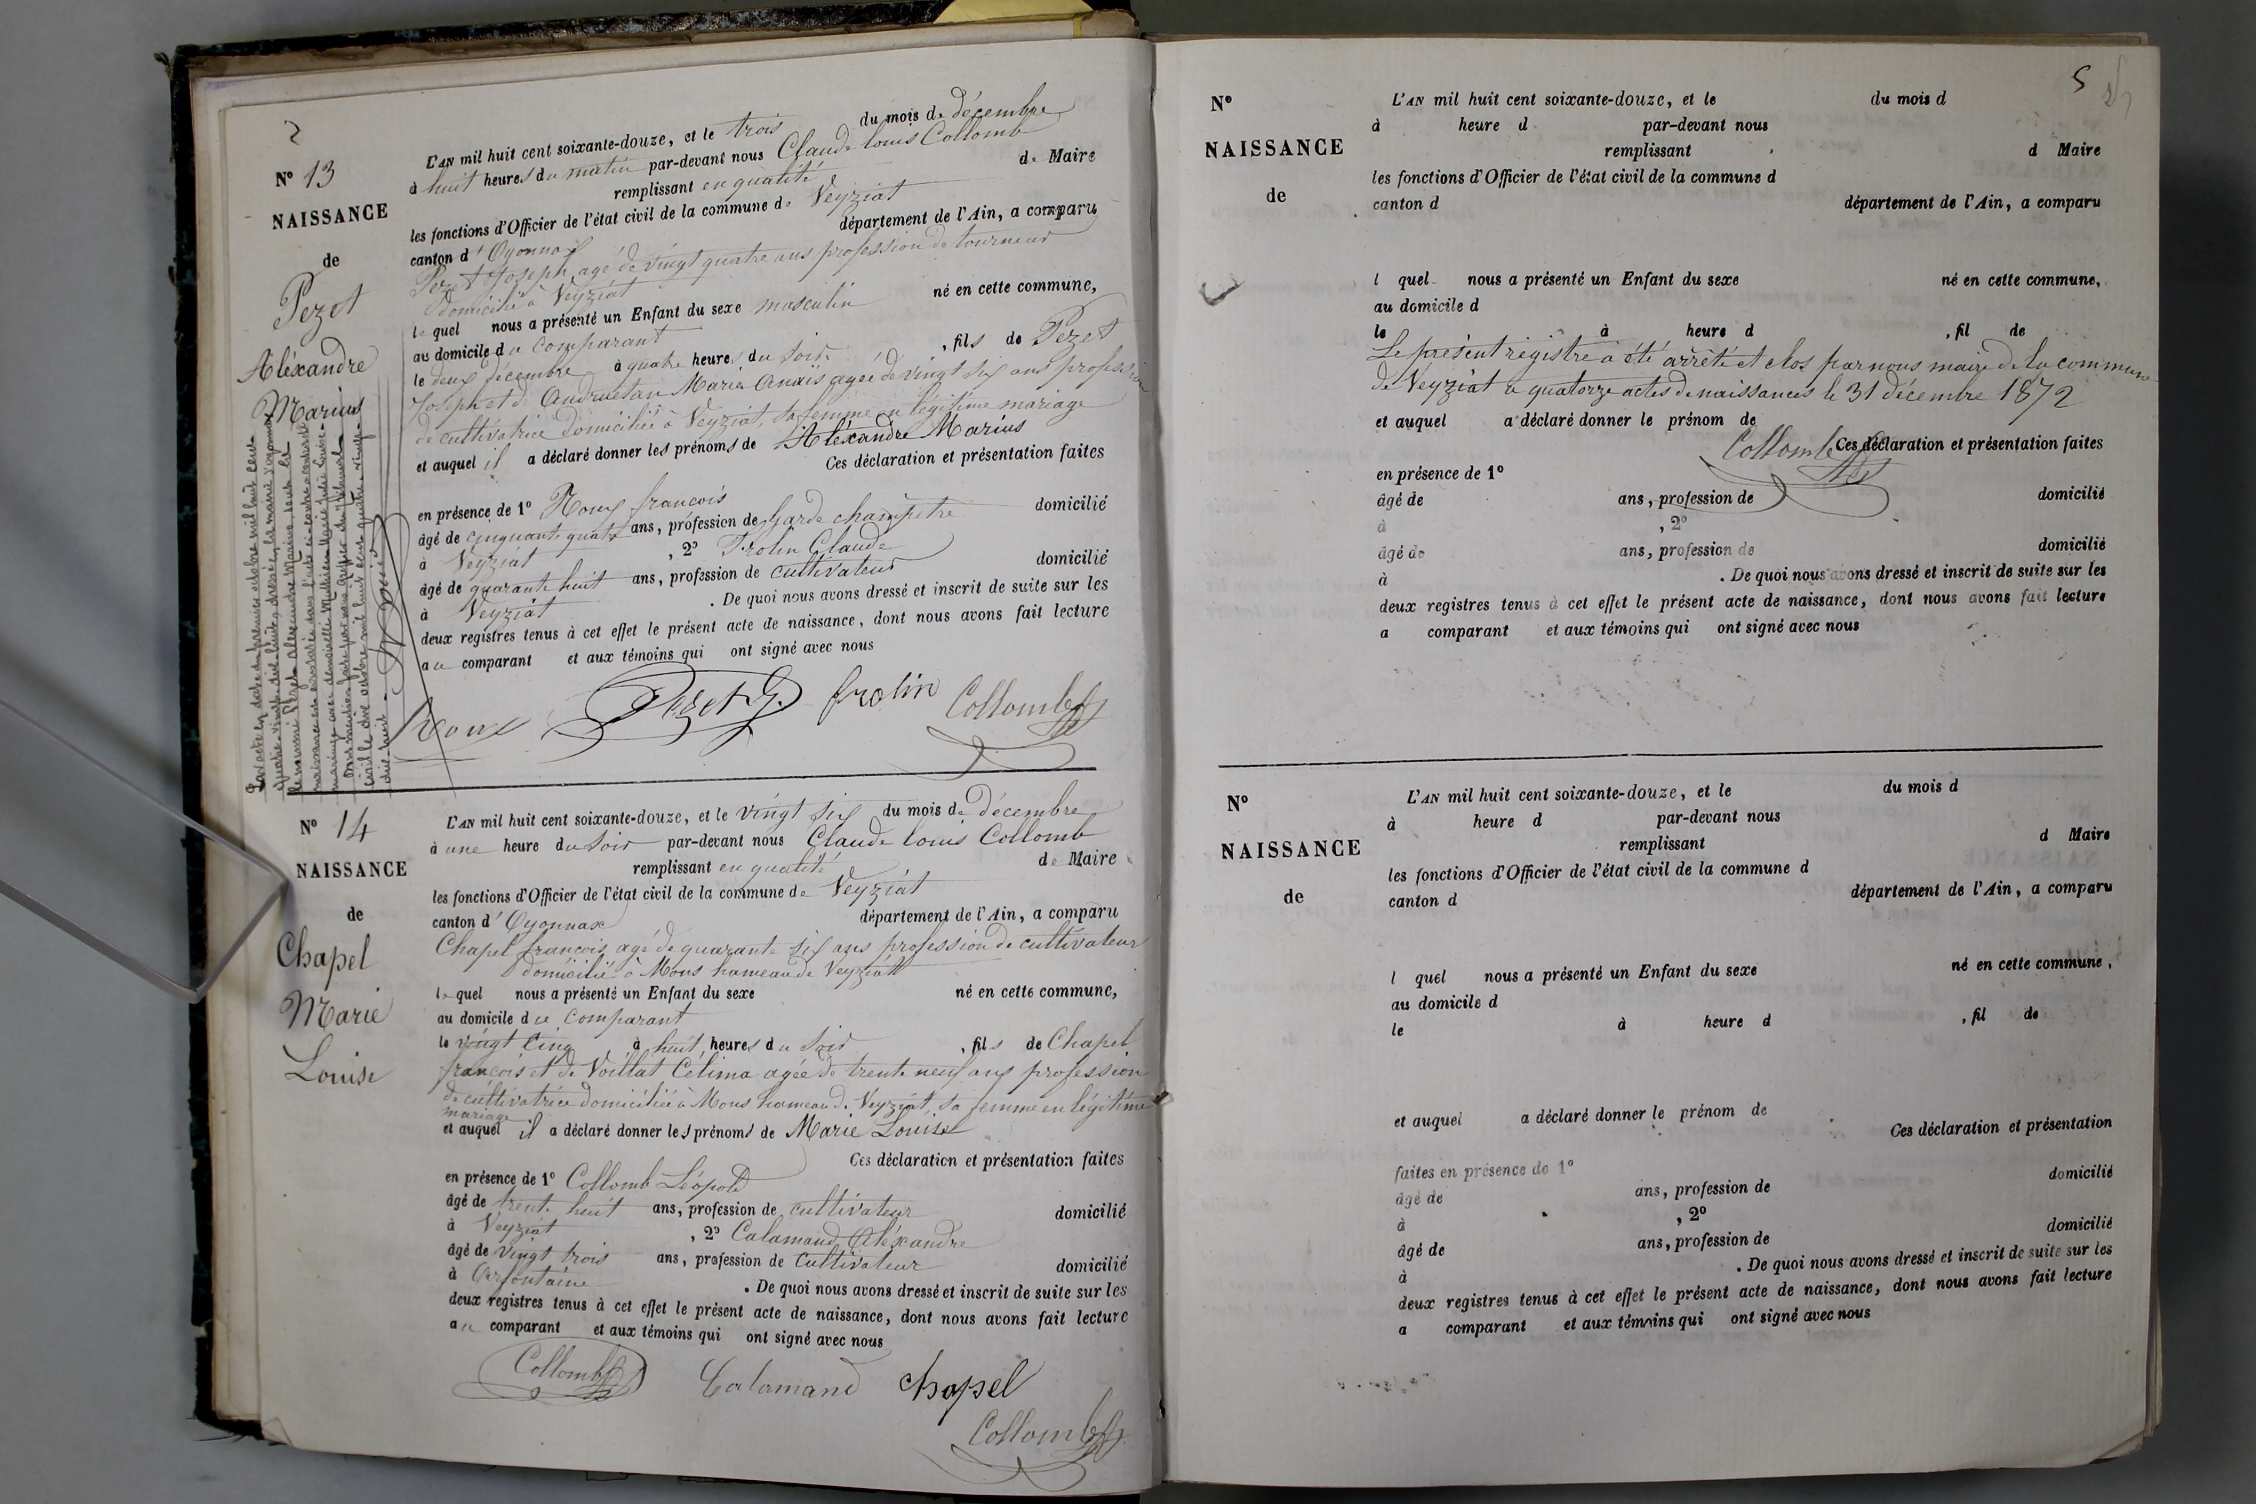 2
N° 13
NAISSANCE
de
Pezet
Aléxandre
Marius
L'AN mil huit cent soixante-douze, et le trois du mois de décembre
à huit heures du matin par-devant nous Claude louis Collomb
remplissant en qualité de Maire
les fonctions d'Officier de l'état civil de la commune de Veyziat
canton d'Oyonnax département de l'Ain, a comparu
Pezet Joseph, agé de vingt quatre ans profession de tourneur
domicilié à Veyziat
lequel nous a présenté un Enfant du sexe masculin né en cette commune,
au domicile du comparant
le deux décembre à quatre heures du soir, fils de Pezet
Joseph et d'Andruetan Marie Anaïs agée de vingt six ans profession
de cultivatrice domiciliée à Veyziat, sa femme en légitime mariage
et auquel il a déclaré donner les prénoms de Aléxandre Marius
Ces déclaration et présentation faites
en présence de 1° Roux francois
âgé de cinquante quatre ans, profession de Garde champêtre domicilié
à Veyziat, 2° Frolin Claude
âgé de quarante huit ans, profession de cultivateur domicilié
à Veyziat. De quoi nous avons dressé et inscrit de suite sur les
deux registres tenus à cet effet le présent acte de naissance, dont nous avons fait lecture
au comparant et aux témoins qui ont signé avec nous
Roux Pezet J. frolin Collomb
Par acte en date du premier octobre mil huit cent
quatre-vingt-dix-huit, dressé, le maire d'Oyonnax
le nommé Pezet Alexandre Marius dont la
naissance est enregistrée dans l'acte ci-contre a contracté
mariage avec demoiselle
civil le dix octobre mil huit cent quatre-vingt-
dix-huit
N° 14
NAISSANCE
de
Chapel
Marie
Louise
L'AN mil huit cent soixante-douze, et le vingt six du mois de décembre
à une heure du soir par-devant nous Claude louis Collomb
remplissant en qualité de Maire
les fonctions d'Officier de l'état civil de la commune de Veyziat
canton d'Oyonnax département de l'Ain, a comparu
Chapel francois, agé de quarante six ans profession de cultivateur
domicilié à Mons hameau de Veyziat
lequel nous a présenté un Enfant du sexe né en cette commune,
au domicile du comparant
le vingt cinq à huit heures du soir, fils de Chapel
francois et de Voillat Célima agée de trente neuf ans profession
de cultivatrice domiciliée à Mons hameau de Veyziat, sa femme en légitime
mariage
et auquel il a déclaré donner les prénoms de Marie Louise
Ces déclaration et présentation faites
en présence de 1° Collomb Léopold
âgé de trente huit ans, profession de cultivateur domicilié
à Veyziat, 2° Calamand Aléxandre
âgé de vingt trois ans, profession de cultivateur domicilié
à Arfontaine. De quoi nous avons dressé et inscrit de suite sur les
deux registres tenus à cet effet le présent acte de naissance, dont nous avons fait lecture
au comparant et aux témoins qui ont signé avec nous
Collomb Calamand chapel
Collomb
5
N°
NAISSANCE
de
L'AN mil huit cent soixante-douze, et le du mois d
à heure d par-devant nous
remplissant d Maire
les fonctions d'Officier de l'état civil de la commune d
canton d département de l'Ain, a comparu
l quel nous a présenté un Enfant du sexe né en cette commune,
au domicile d
le à heure d, fil de
Le présent registre a été arrêté et clos par nous maire de la commune
de Veyziat a quatorze actes de naissances le 31 décembre 1872
et auquel a déclaré donner le prénom de
Collomb Ces déclaration et présentation faites
en présence de 1°
âgé de ans, profession de domicilié
à, 2°
âgé de ans, profession de domicilié
à. De quoi nous avons dressé et inscrit de suite sur les
deux registres tenus à cet effet le présent acte de naissance, dont nous avons fait lecture
a comparant et aux témoins qui ont signé avec nous
N°
NAISSANCE
de
L'AN mil huit cent soixante-douze, et le du mois d
à heure d par-devant nous
remplissant d Maire
les fonctions d'Officier de l'état civil de la commune d
canton d département de l'Ain, a comparu
l quel nous a présenté un Enfant du sexe né en cette commune,
au domicile d
le à heure d, fil de
et auquel a déclaré donner le prénom de
Ces déclaration et présentation
faites en présence de 1° domicilié
âgé de ans, profession de
à, 2° domicilié
âgé de ans, profession de
à. De quoi nous avons dressé et inscrit de suite sur les
deux registres tenus à cet effet le présent acte de naissance, dont nous avons fait lecture
a comparant et aux témoins qui ont signé avec nous